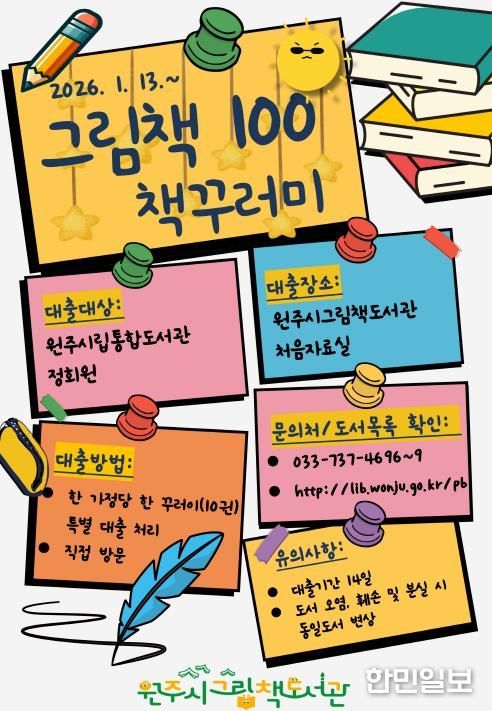 2026. 1. 13.~
그림책 100
책꾸러미
대출대상:
원주시립통합도서관
정회원
대출장소:
원주시그림책도서관
처음자료실
대출방법:
한 가정당 한 꾸러미(10권)
특별 대출 처리
직접 방문
문의처/도서목록 확인:
033-737-4696~9
http://lib.wonju.go.kr/pb
유의사항:
대출기간 14일
도서 오염, 훼손 및 분실 시
동일도서 변상
원주시그림책도서관
한민일보